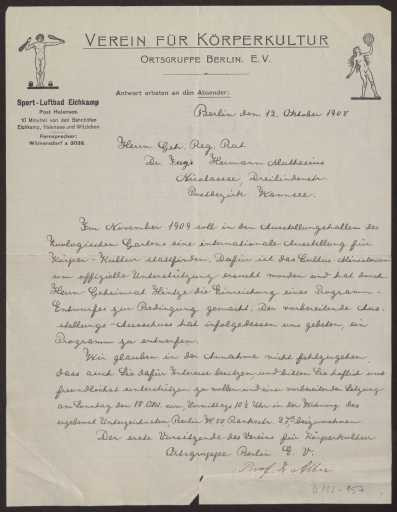 VEREIN FÜR KÖRPERKULTUR
ORTSGRUPPE BERLIN. E. V.
Antwort erbeten an den Absender:
Sport-Luftbad Eichkamp
Post Halensee.
10 Minuten von den Bahnhöfen
Eichkamp, Halensee und Witzleben
Fernsprecher:
Wilmersdorf a 8036.
Berlin den 12. Oktober 1908
Herrn Geh. Reg. Rat
Dr. Hermann Muthesius
Nicolassee, Dreilindenstr
Postbezirk Wannsee.
Im November 1909 soll in den Ausstellungshallen des
Zoologischen Gartens eine internationale Ausstellung für
Körper-Kultur stattfinden. Dafür ist das Cultus-Ministerium
um offizielle Unterstützung ersucht worden und hat durch
Herrn Geheimrat Hintze die Einreichung eines Programm-
Entwurfes zur Bedingung gemacht. Der vorbereitende Aus-
stellungs-Ausschuss hat infolgedessen uns gebeten, ein
Programm zu entwerfen.
Wir glauben in der Annahme nicht fehlzugehen,
dass auch Sie dafür Interesse besitzen und bitten Sie höflich uns
freundlichst unterstützen zu wollen und eine vorbereitende Sitzung
am Sonntag den 18. Okt. cur. Vormittags 10½ Uhr in der Wohnung des
ergebenst Unterzeichneten, Berlin W 50 beizuwohnen
Der erste Vorsitzende des Vereins für Körperkultur
Ortsgruppe Berlin E. V.
Prof. Dr